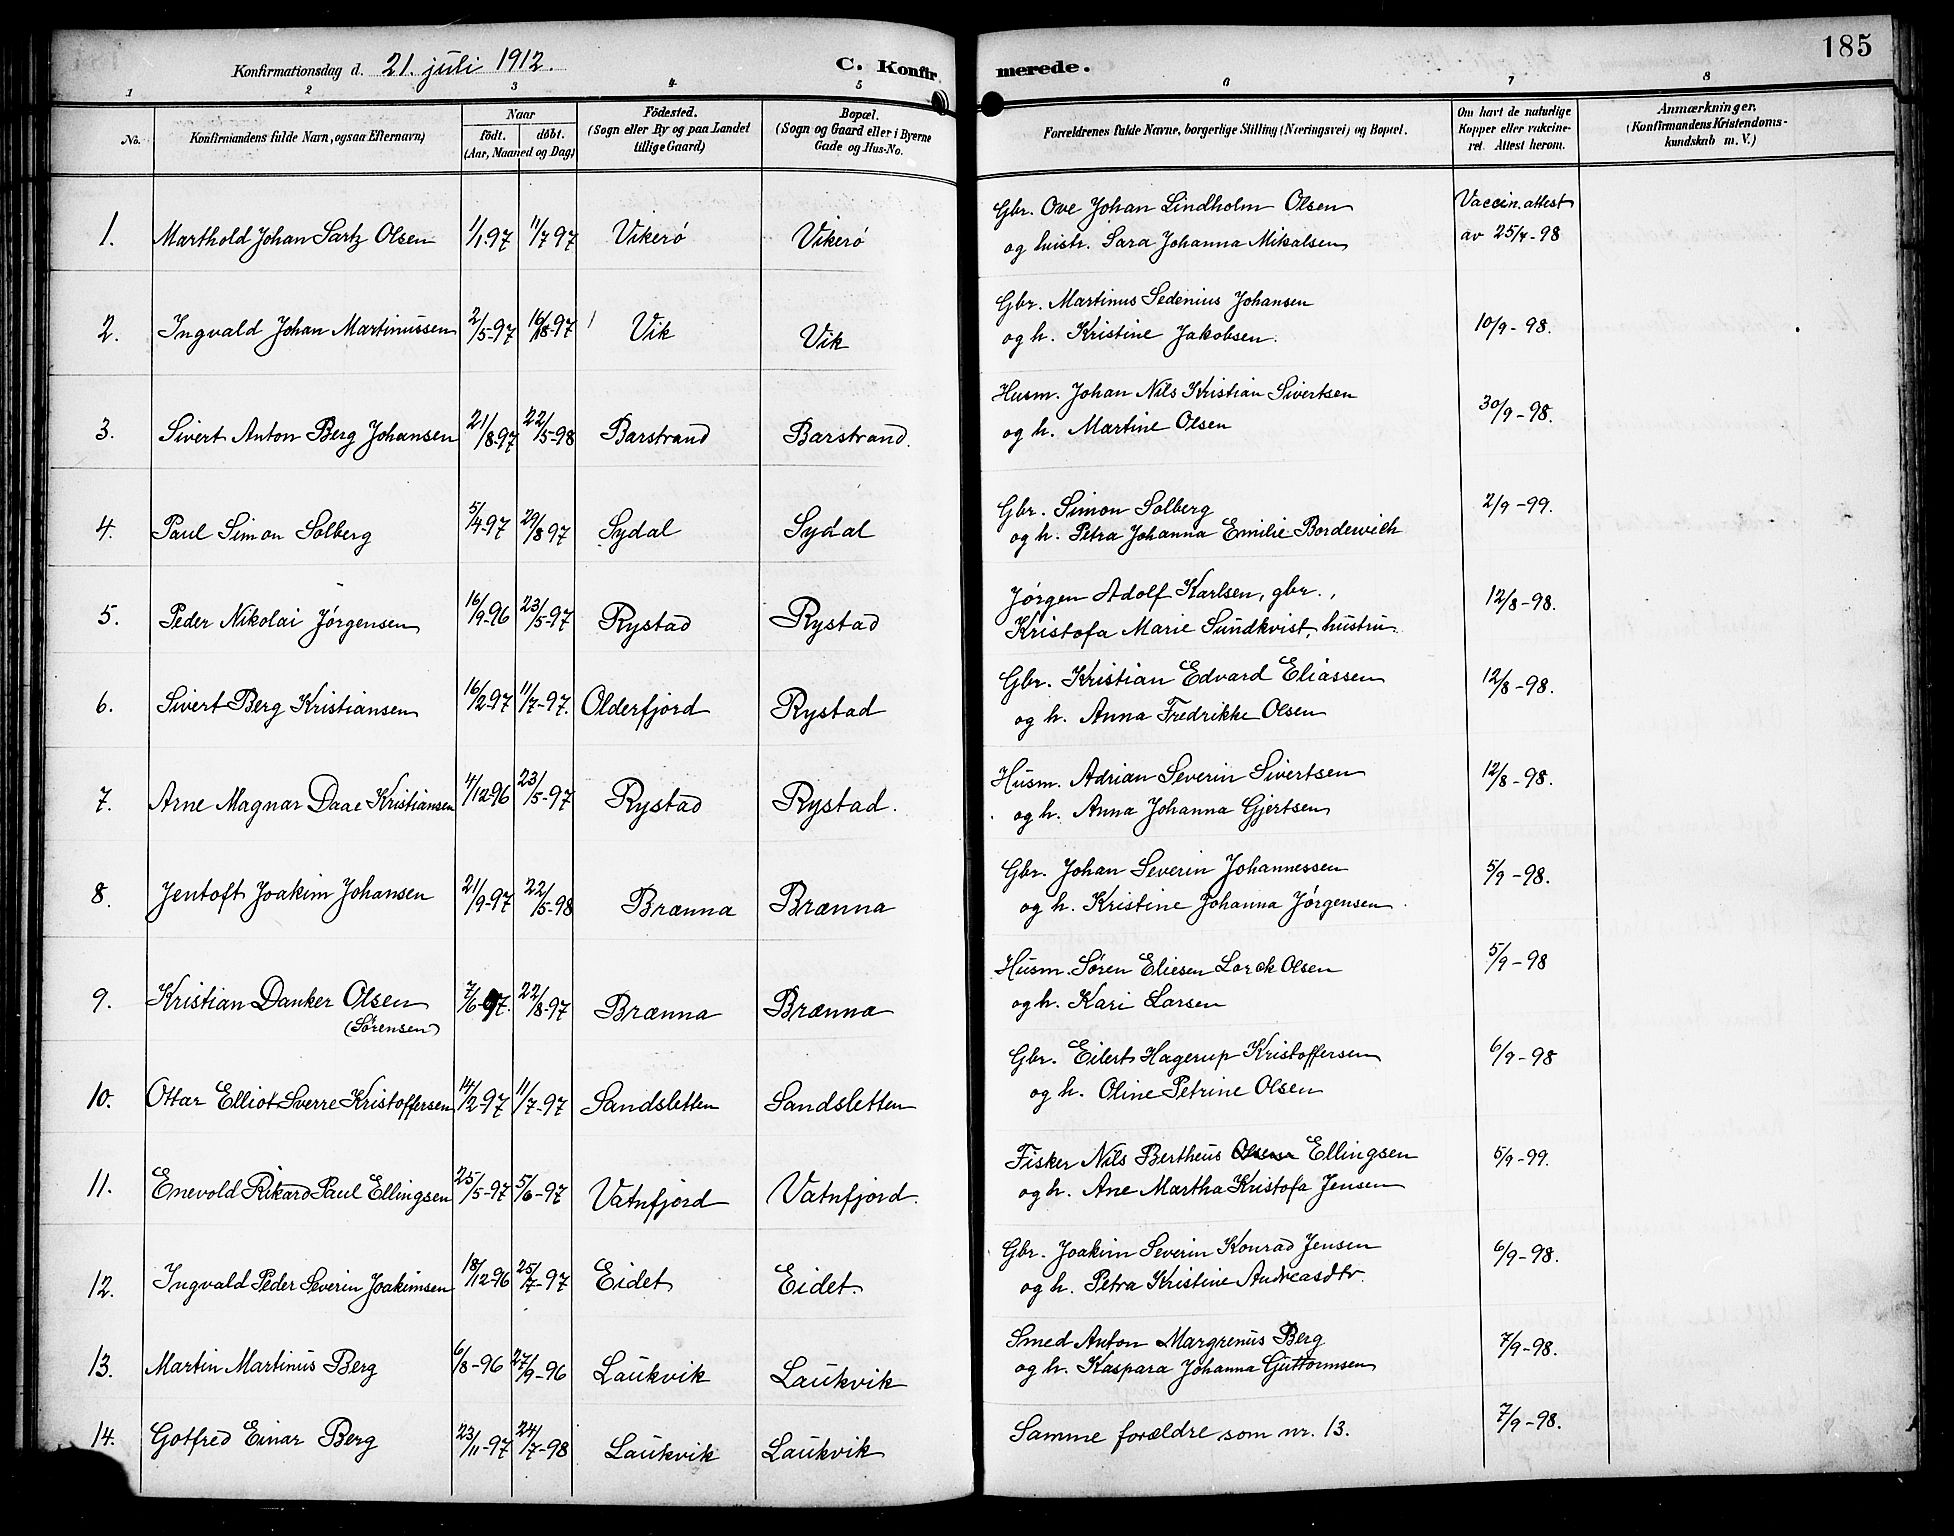 185
Konfirmationsdag d. 21. juli 1912.
C. Konfirmerede.
1 2 3 4 5 6 7 8
No. Konfirmandens fulde Navn, ogsaa Efternavn) Naar födt. döbt. (Aar, Maaned og Dag) Födested. (Sogn eller By og paa Landet tillige Gaard) Bopæl. (Sogn og Gaard eller i Byerne Gade og Hus-No. Forældrenes fulde Navne, borgerlige Stilling (Næringsvei) og Bopæl. Om havt de naturlige Kopper eller vakcineret. Attest herom. Anmærkninger. (Konfirmandens Kristendomskundskab m. V.)
1. Marthold Johan Sartz Olsen 1/1-97 11/7 97 Vikerø Vikerø Gbr. Ove Johan Lindholm Olsen Vaccin. attest
og hustr. Sara Johanna Mikalsen av 25/7-98
2. Ingvald Johan Martinussen 2/5-97 16/8-97 Vik Vik Gbr. Martinus Sedenius Johansen
og h. Kristine Jakobsen. 10/9-98.
3. Sivert Anton Berg Johansen 21/8-97 22/5-98 Barstrand Barstrand. Husm. Johan Nils Kristian Sivertsen
og h. Martine Olsen 30/9-98.
4. Paul Simon Solberg 5/4-97 29/8 97 Sydal Sydal Gbr. Simon Solberg 2/9-99.
og h. Petra Johanna Emilie Bordewich
5. Peder Nikolai Jørgensen 16/9-96 23/5-97 Rystad Rystad Jørgen Adolf Karlsen, gbr., 12/8-98.
Kristofa Marie Sundkvist, hustru.
6. Sivert Berg Kristiansen 16/2-97 11/7-97. Olderfjord Rystad Gbr. Kristian Edvard Eliassen 12/8-98.
og h. Anna Fredrikke Olsen
7. Arne Magnar Daae Kristiansen 4/12-96 23/5-97 Rystad Rystad. Husm. Adrian Severin Sivertsen 12/8-98.
og h. Anna Johanna Gjertsen
8. Jentoft Joakim Johansen 21/9-97 22/5-98 Brænna Brænna Gbr. Johan Severin Johannessen 5/9-98.
og h. Kristine Johanna Jørgensen.
9. Kristian Danker Olsen 7/6-97. 22/8-97 Brænna Brænna Husm. Søren Eliesen Lorck Olsen 5/9-98
(Sørensen) og h. Kari Larsen
10. Ottar Elliot Sverre Kristoffersen 14/2-97 11/7-97 Sandsletten Sandsletten Gbr. Eilert Hagerup Kristoffersen 6/9-98
og h. Oline Petrine Olsen
11. Enevold Rikard Paul Ellingsen 25/5-97 5/6-97 Vatnfjord Vatnfjord. Fisker Nils Bertheus Olsen Ellingsen 5/9-99.
og h. Ane Martha Kristofa Jensen
12. Ingvald Peder Severin Joakimsen 18/12-96 25/7-97 Eidet Eidet. Gbr. Joakim Severin Konrad Jensen 6/9-98.
og h. Petra Kristine Andreasdtr.
13. Martin Martinus Berg 6/8-96 27/9-96 Laukvik Laukvik Smed Anton Margrenus Berg 7/9-98.
og h. Kaspara Johanna Guttormsen
14. Gotfred Einar Berg 23/11-97 24/7-98 Laukvik Laukvik Samme forældre som nr. 13. 7/9-98.